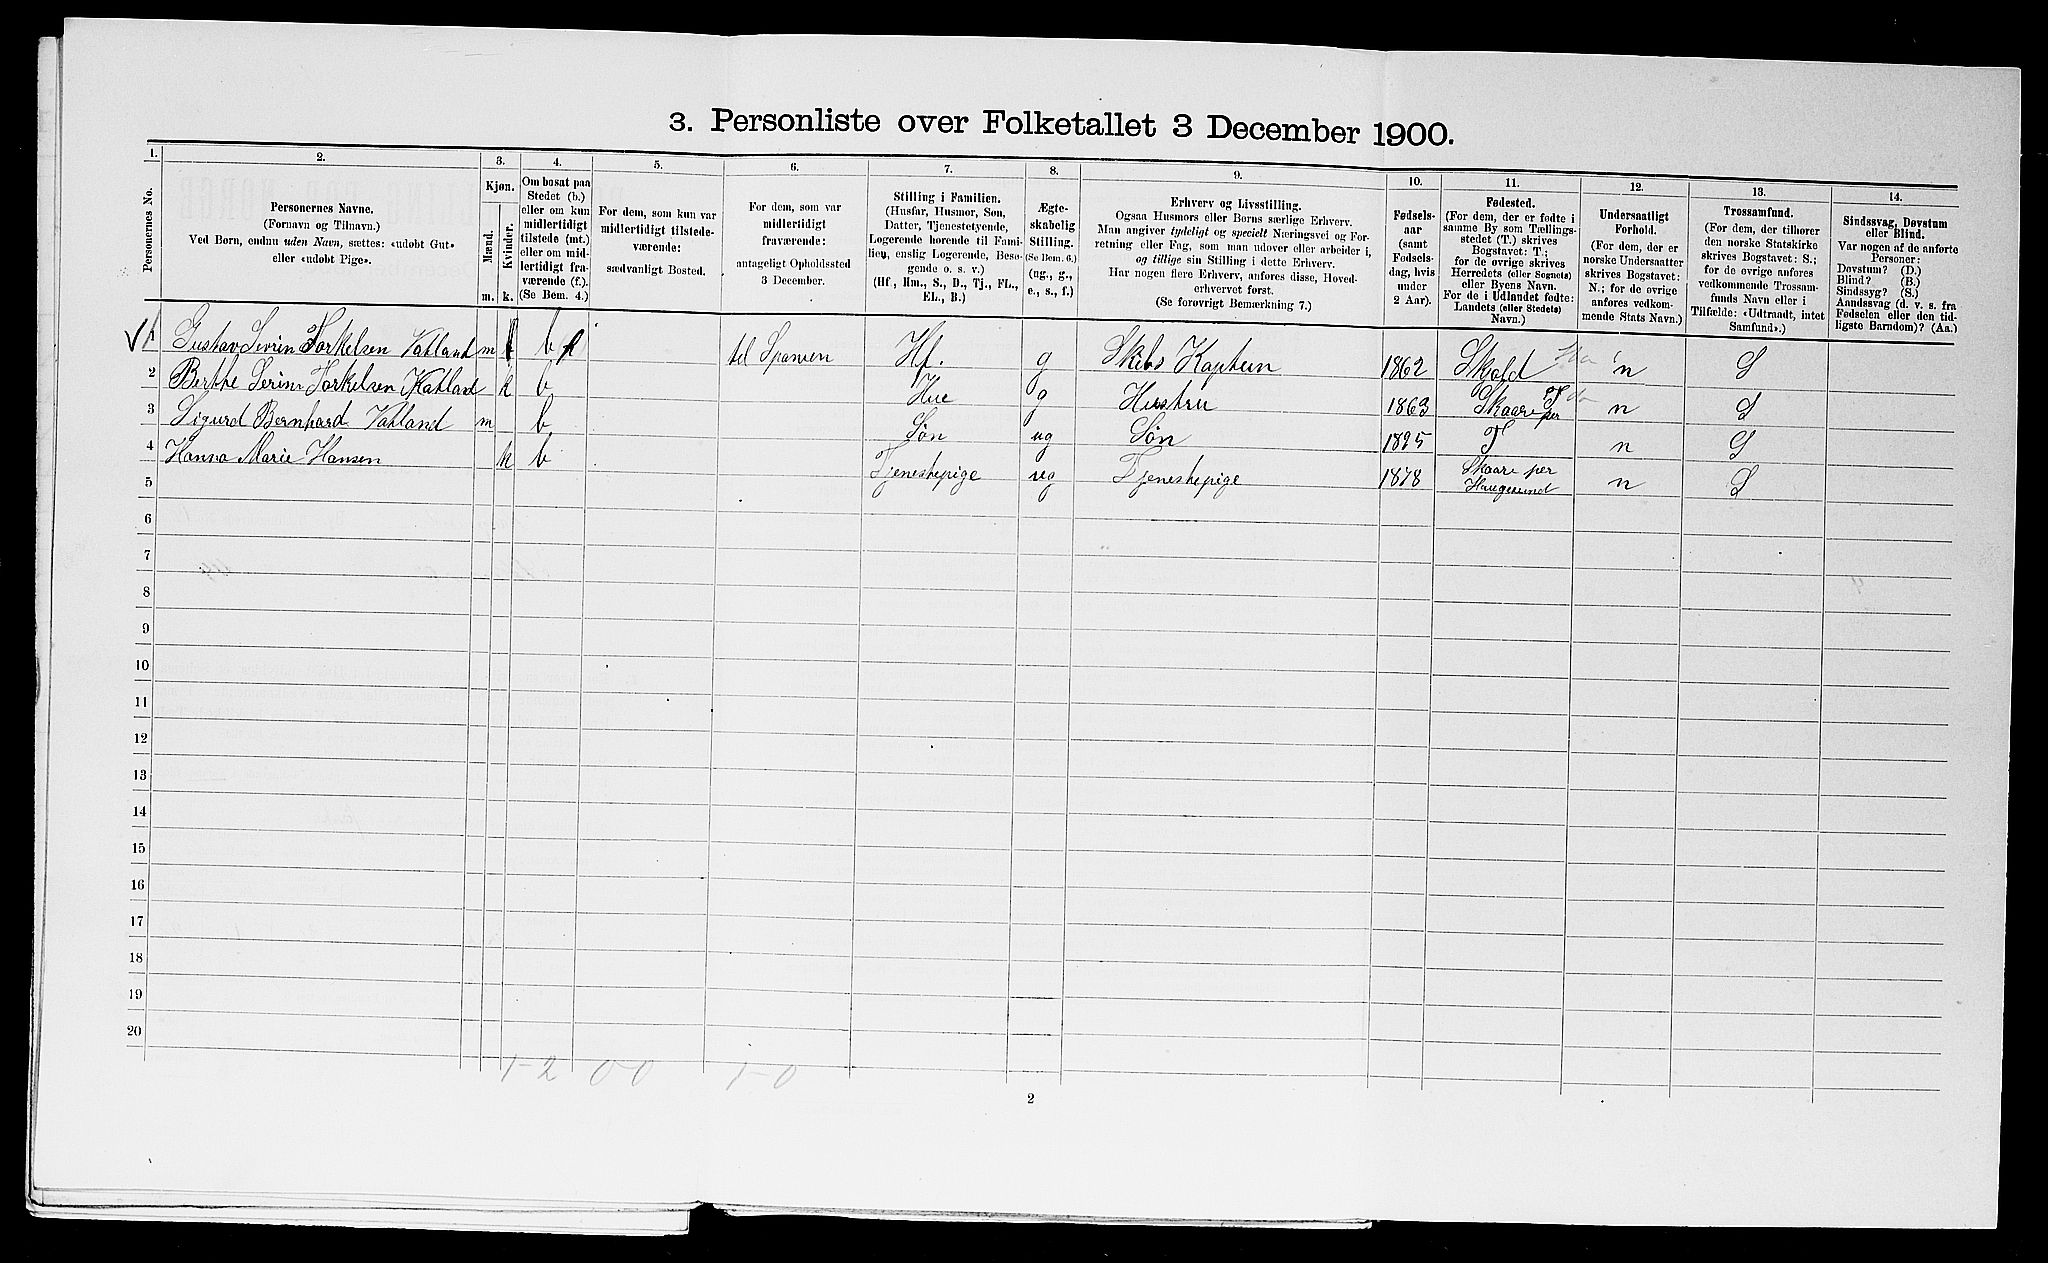 3. Personliste over Folketallet 3 December 1900.
1. 2. 3. 4. 5. 6. 7. 8. 9. 10. 11. 12. 13. 14.
Personernes No.
Personernes Navne.
(Fornavn og Tilnavn.)
Ved Børn, endnu uden Navn, sættes: «udøbt Gut»
eller «udøbt Pige».
Kjøn.
Mænd.
Kvinder.
m. k.
Om bosat paa
Stedet (b.)
eller om kun
midlertidigt
tilstede (mt.)
eller om mid-
lertidigt fra-
værende (f.).
(Se Bem. 4.)
For dem, som kun var
midlertidigt tilstede-
værende:
sædvanligt Bosted.
For dem, som var
midlertidigt
fraværende:
antageligt Opholdssted
3 December.
Stilling i Familien.
(Husfar, Husmor, Søn,
Datter, Tjenestetyende,
Logerende hørende til Fami-
lien, enslig Logerende, Besø-
gende o. s. v.)
(Hf., Hm., S., D., Tj., FL.,
EL., B.)
Ægte-
skabelig
Stilling.
(Se Bem. 6.)
(ug., g.,
e., s., f.)
Erhverv og Livsstilling.
Ogsaa Husmors eller Børns særlige Erhverv.
Man angiver tydeligt og specielt Næringsvei og For-
retning eller Fag, som man udøver eller arbeider i,
og tillige sin Stilling i dette Erhverv.
Har nogen flere Erhverv, anføres disse, Hoved-
erhvervet først.
(Se forøvrigt Bemærkning 7.)
Fødsels-
aar
(samt
Fødsels-
dag, hvis
under
2 Aar).
Fødested.
(For dem, der er fødte i
samme By som Tællings-
stedet (T.) skrives
Bogstavet: T.;
for de øvrige skrives
Herredets (eller Sognets)
eller Byens Navn.
For de i Udlandet fødte:
Landets (eller Stedets)
Navn.)
Undersaatligt
Forhold.
(For dem, der er
norske Undersaatter
skrives Bogstavet:
N.; for de øvrige
anføres vedkom-
mende Stats Navn.)
Trossamfund.
(For dem, der tilhører
den norske Statskirke
skrives Bogstavet: S.;
for de øvrige anføres
vedkommende Trossam-
funds Navn eller i
Tilfælde: «Udtraadt, intet
Samfund».)
Sindssvag, Døvstum
eller Blind.
Var nogen af de anførte
Personer:
Døvstum? (D.)
Blind? (B.)
Sindssyg? (S.)
Aandssvag (d. v. s. fra
Fødselen eller den tid-
ligste Barndom)? (Aa.)
1 Gustav Sevrin Torkelsen Vatland m b f til Spanien Hf. g Skibs Kaptein 1862 Skjold n S
2 Berthe Serine Torkelsen Vatland k b Hue g Hustru 1863 Skaare per n S
3 Sigurd Bernhard Vatland m b Søn ug Søn 1895 T n S
4 Hanna Marie Hansen k b Tjenestepige ug Tjenestepige 1878 Skaare per
Haugesund n S
5
6
7
8
9
10
11
12
13
14
15
16
17
18
19
20
1-2 0-0 1-0
2